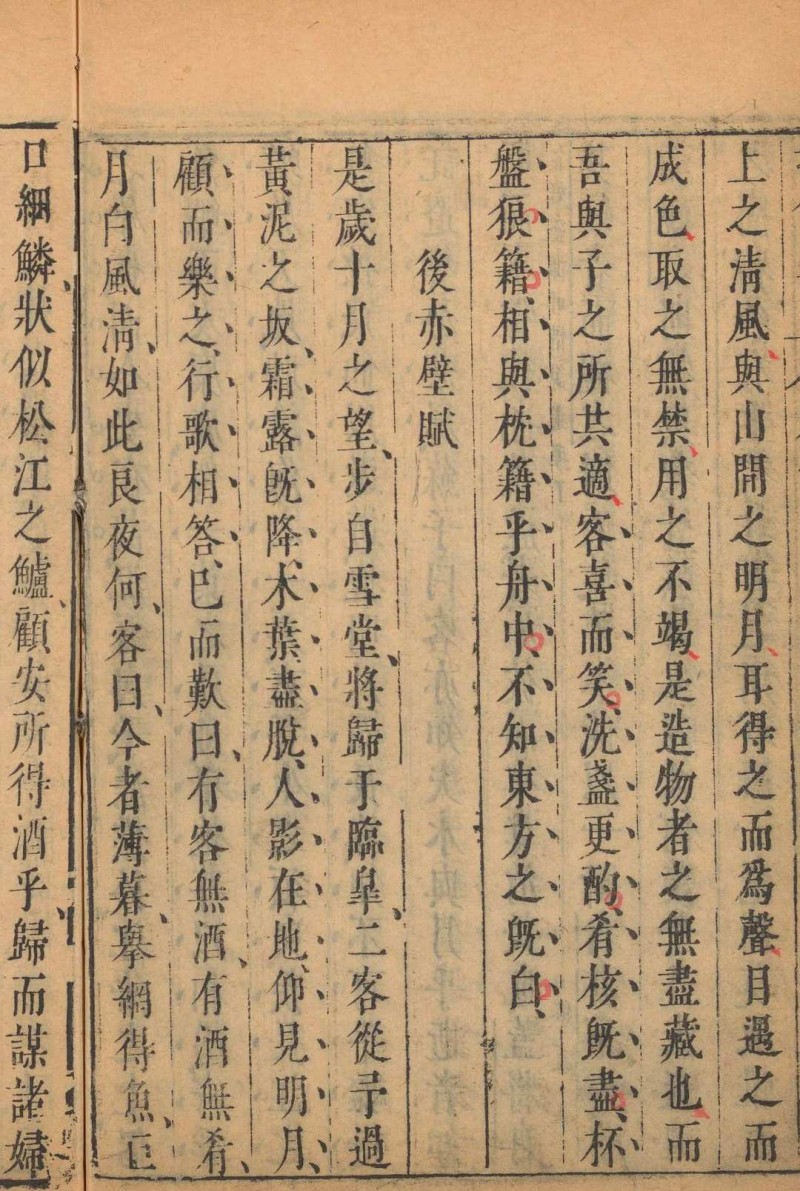 上之清風與山間之明月耳得之而爲聲目遇之而
成色取之無禁用之不竭是造物者之無盡藏也而
吾與子之所共適客喜而笑洗盞更酌肴核既盡杯
盤狼籍相與枕籍乎舟中不知東方之既白
後赤壁賦
是歲十月之望步自雪堂將歸于臨皐二客從予過
黃泥之坂霜露既降木葉盡脫人影在地仰見明月
顧而樂之行歌相答已而歎曰有客無酒有酒無肴
月白風清如此良夜何客曰今者薄暮舉網得魚巨
口細鱗狀似松江之鱸顧安所得酒乎歸而謀諸婦